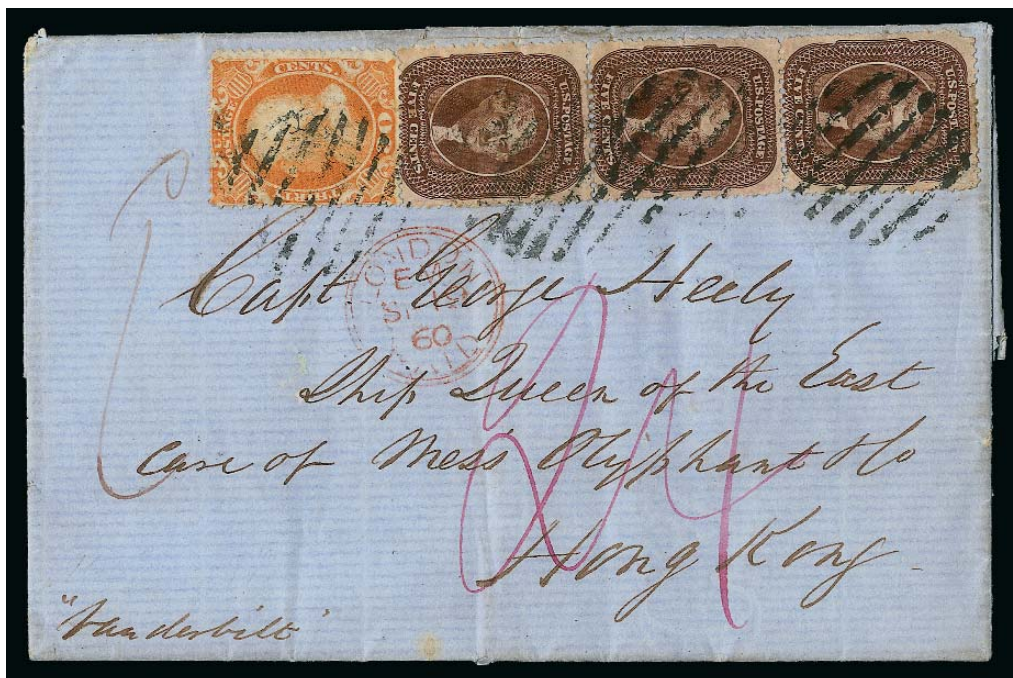 CENTS.
U.S.POSTAGE
FIVE CENTS
U.S.POSTAGE
FIVE CENTS
U.S.POSTAGE
FIVE CENTS
LONDON
60
PAID
Capt George Heely
Ship Queen of the East
care of Mess Olyphant & Co
Hong Kong
24
"Vanderbilt"